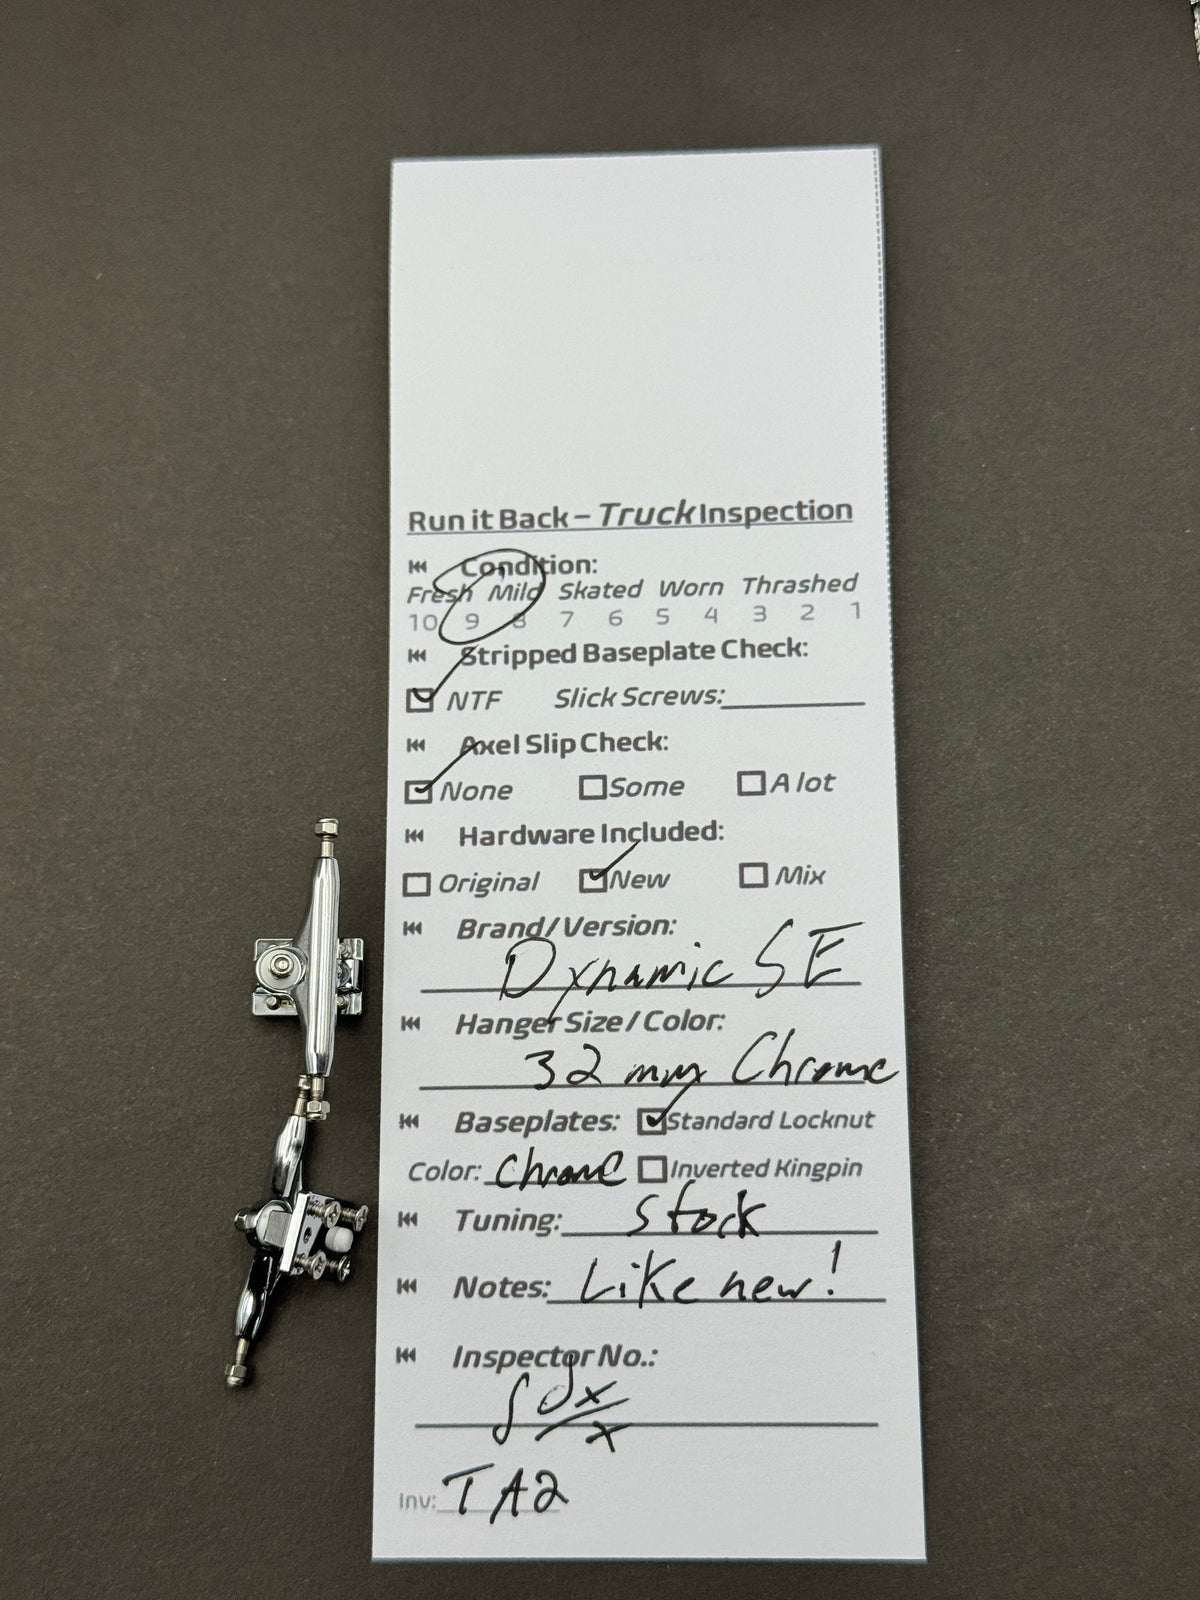 Run it Back – Truck Inspection
Condition:
Fresh Mild Skated Worn Thrashed
10 9 8 7 6 5 4 3 2 1
Stripped Baseplate Check:
NTF Slick Screws:
Axel Slip Check:
None Some A lot
Hardware Included:
Original New Mix
Brand/Version:
Dynamic SE
Hanger Size / Color:
32 mm Chrome
Baseplates: Standard Locknut
Color: Chrome Inverted Kingpin
Tuning: Stock
Notes: Like new!
Inspector No.:
∫ dx/x
Inv: TA2